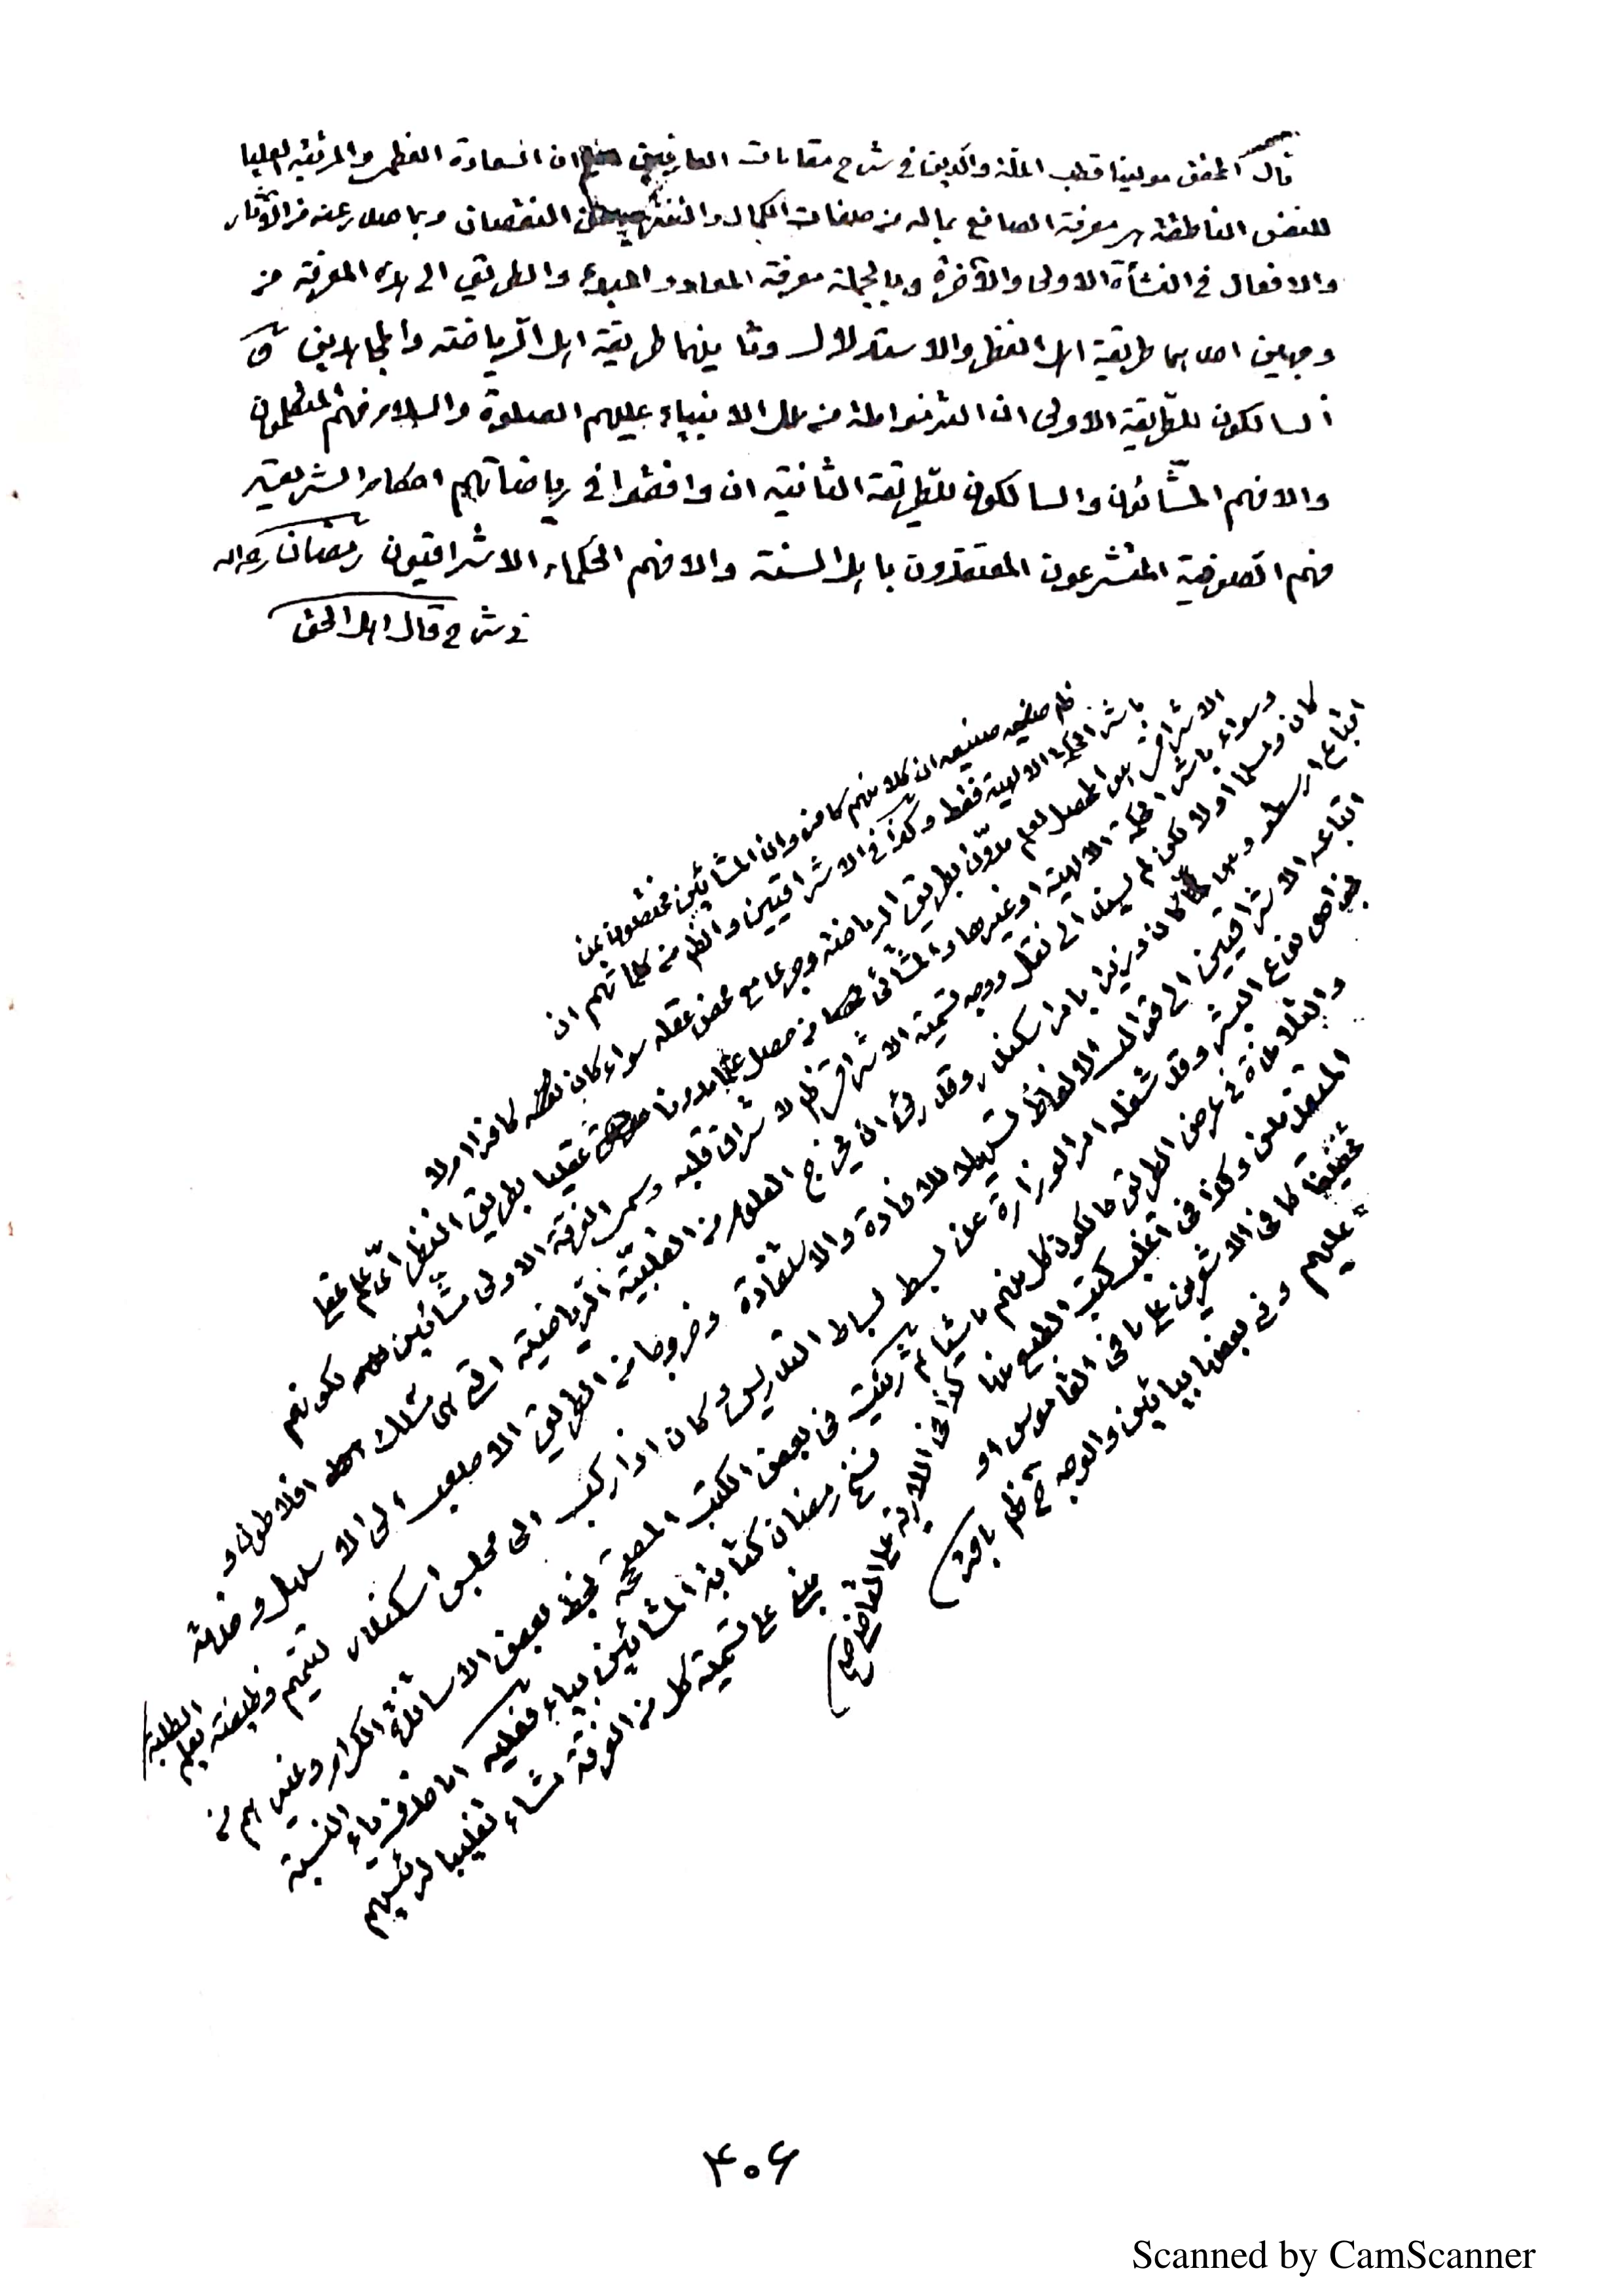 قال المحقق مولينا قطب الملة والدين في شرح مقامات العارفين ان السعادة العظمى والمرتبة العليا
للنفس الناطقة هي معرفة الصانع بما له من صفات الكمال والتنزه عن النقصان وبما صدر عنه من الآثار
والافعال في النشأة الاولى والآخرة وبالجملة معرفة المعاد والمبدء والطريق الى هذه المعرفة من
وجهين احدهما طريقة اهل النظر والاستدلال وثانيهما طريقة اهل الرياضة والمجاهدين و
السالكون للطريقة الاولى ان التزموا ملة من ملل الانبياء عليهم الصلوة والسلام فهم المتكلمون
والا فهم المشائون والسالكون للطريقة الثانية ان وافقوا في رياضاتهم احكام الشريعة
فهم الصوفية المتشرعون المعتقدون باهل السنة والا فهم الحكماء الاشراقيون رمضان رحمه الله
في شرح قال اهل الحق
ان كلا منهم كافر وان المشائين مختصون بمن
باشر الحكمة الالهية فقط وكذا في الاشراقيين والظ من كلماتهم ان
الاشراقي هو المحصل لعلم مدون بطريق الرياضة وجوعا مع محض عقله سواء كان كافرا ام لا
وسواء باشر الحكمة الالهية او غيرها والمشائي من حصل علما مدونا عقليا بطريق النظر اى علم عقلي
كان ومسلما اولا لكن لم يسند الى نقل ووجه تسمية الاشراقي ظ لاشراق قلبه وسمى الفرقة الاولى مشائين لكونهم
اتباع ارسطو وهو كان وزيرا بامر اسكندر وقد رئ ان يخرج العلوم من القلبية الرياضية التى هى مسلك افلاطون و
اتباعه الاشراقيين الى قوالب الالفاظ تسهيلا للافادة والاستفادة وخروجا من الطريق الاصعب الى الاسهل وخدمة
لخواص نوع البشر وقد شغله امر الوزارة عن بسط بساط التدريس وكان اذا ركب الى مجلس اسكندر لتتميم وظيفته يعلم الطلبة
والتلامذة في عرض الطريق ما يكون كل منهم ماشيا ثم رئيت فى بعض الكتب المصححة بخط بعض الاساتذة الكرام وغيرهم من
المعتمدين وكذا فى اغلب كتب الطبع نسخ رمضان كتابة المشائين بياء فعليه اما حذف ياء النسبة
تخفيفا كما فى الاشعرين على ما فى القاموس او يبنى على تسمية كل من الفرقة مشاء تغليبا لرئيسهم
عليهم وفى بعضها بيائين والوجه ح ظ
٤٠٦
Scanned by CamScanner